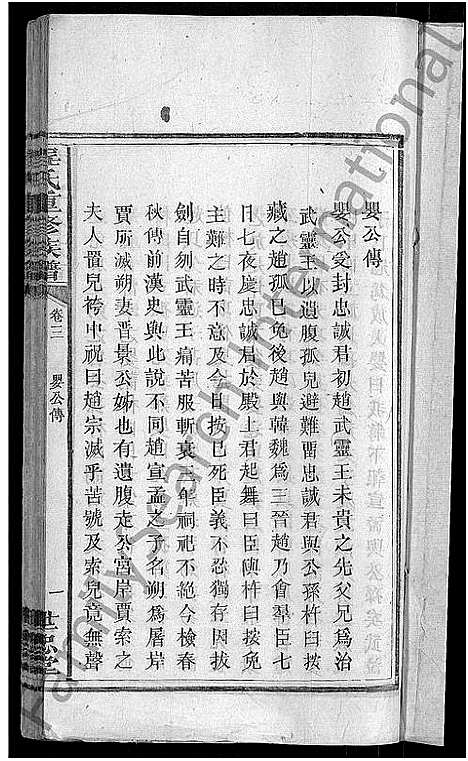 嬰公傳
嬰公受封忠誠君初趙武靈王未貴之先父兄爲治
武靈王以遺腹孤兒避難霤忠誠君與公孫杵臼按
藏之趙孤已免後趙與韓魏爲三晉趙乃會羣臣七
日七夜慶忠誠君於殿上君起舞曰臣與杵臼按免
主難之時不意及今臼按已死臣義不忍獨存因拔
劍自刎武靈王痛苦服斬衰三年祠祀不絕今檢春
秋傳前漢史與此說不同趙宣孟之子名朔爲屠岸
賈所滅朔妻晉景公姊也有遺腹走公宮岸賈索之
夫人置兒袴中祝曰趙宗滅乎苦號及索兒竟無聲
程氏重修族譜
卷三
嬰公傳
一
世忠堂
FamilySearch International